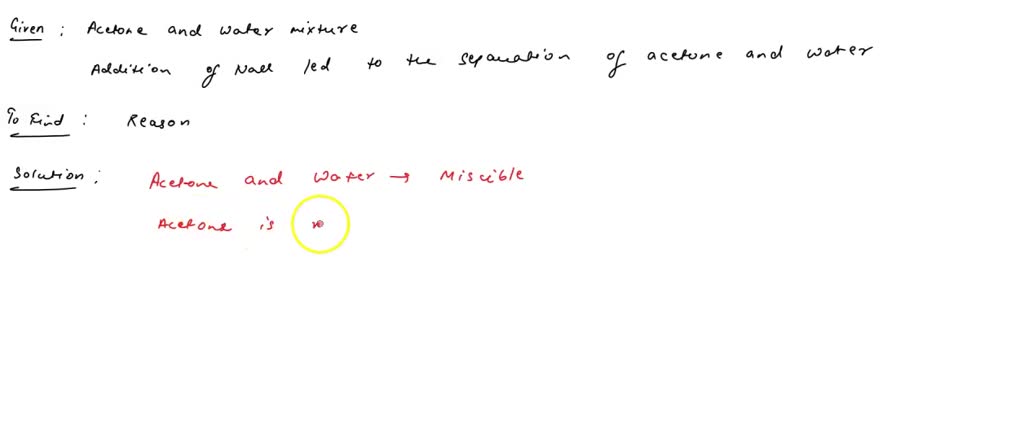 Given : Acetone and water mixture
Addition of Nacl led to the separation of acetone and water
To Find : Reason
Solution : Acetone and Water → Miscible
Acetone is